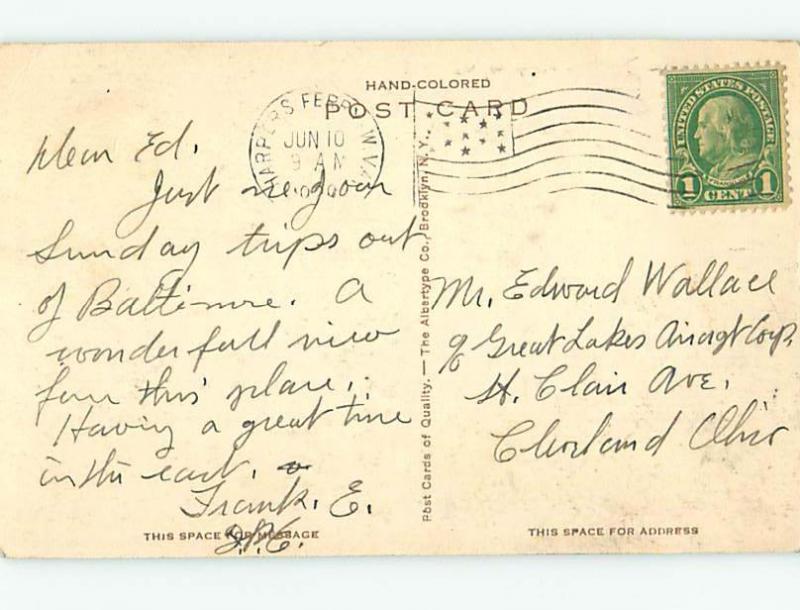 HAND-COLORED
POST CARD
HARPERS FERRY W.VA.
JUN 10
9 AM
UNITED STATES POSTAGE
FRANKLIN
1 CENT 1
Dear Ed,
Just one of our
Sunday trips out
of Baltimore. A
wonderfull view
from this place.
Having a great time
in the east.
Frank. E.
THIS SPACE FOR MESSAGE
Post Cards of Quality. — The Albertype Co., Brooklyn, N. Y.
Mr. Edward Wallace
% Great Lakes Aircraft Corp.
St. Clair Ave.
Cleveland Ohio
THIS SPACE FOR ADDRESS